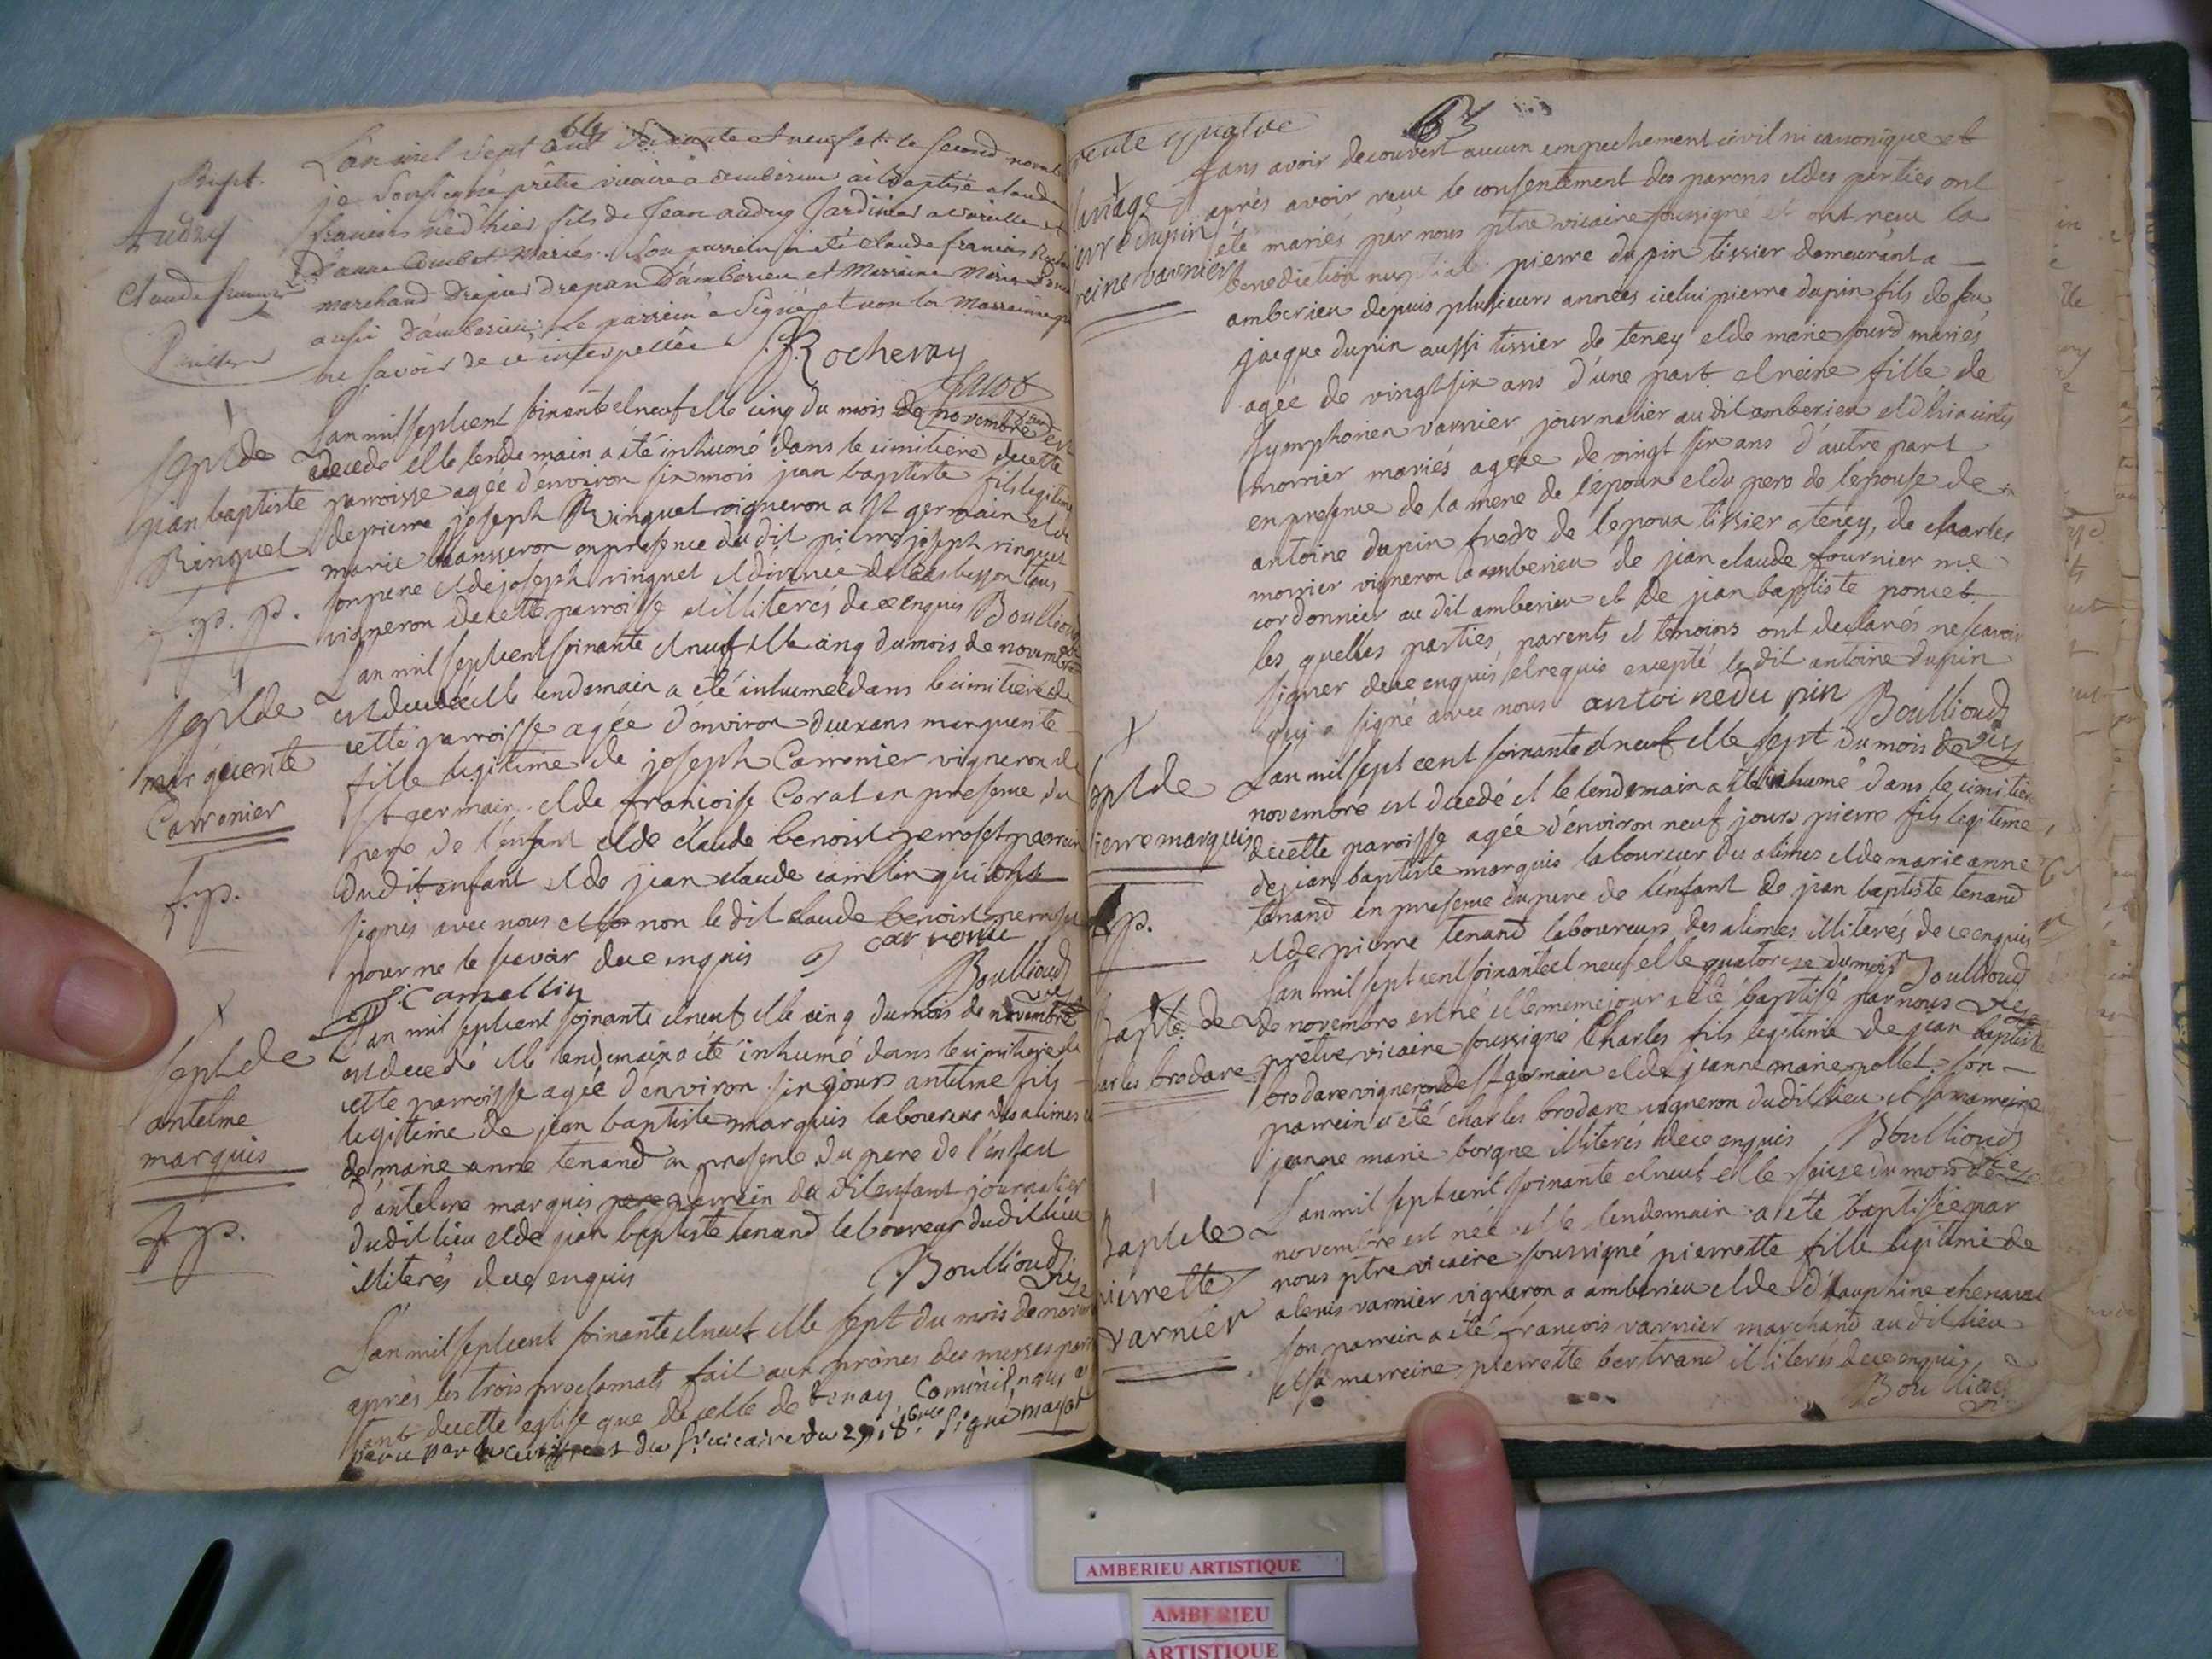 64
Bapt.
Audry
Claude françois
L'an mil sept cent soixante et neuf et le second novembre
je soussigné prêtre vicaire a amberieu ai baptisé claude
françois né d'hier fils de Jean audry Jardinier a
d'anne Combet Mariés. Son parrein a été claude françois
marchand Drapier Drapan D'amberieu et Marraine Marie
aussi d'amberieu. Le parrein a Signé et non la Marraine pr
ne savoir de ce interpellée
J. Rocheray
Jacob
seplde
jean baptiste
Ringuet
f. p. p.
L'an mil septcent soixante et neuf et le cinq du mois de novembre est
decede et le lendemain a été inhumé dans le cimitiere decette
parroisse agée d'environ six mois jean baptiste fils legitime
de pierre joseph Ringuet vigneron a St germain et de
marie en presence du dit pierre joseph ringuet
son pere et de joseph ringuet et divincé tous
vigneron de cette parroisse illiterés de ce enquis Boullioud
seplde
marguerite
Carronier
f. p.
L'an mil septcent soixante et neuf et le cinq du mois de novembre
est decedée et le lendemain a été inhumée dans le cimitiere de
cette parroisse agée d'environ deux ans marguerite
fille legitime de joseph Carronier vigneron de
St germain et de françoise Corat en presence du
pere de l'enfant et de claude benoist perroset parrein
dudit enfant et de jean claude camelin qui ont
signés avec nous et non le dit claude benoist perroset
pour ne le scavoir de ce enquis carronie
Boullioud
vic
J. Camellin
seplde
antelme
marquis
f. p.
L'an mil septcent soixante et neuf et le cinq du mois de novembre
est decedé et le lendemain a été inhumé dans le cimitiere de
cette parroisse agée d'environ six jours antelme fils
legitime de jean baptiste marquis laboureur des alimes et
de marie anne tenand en presence du pere de l'enfant
d'antelme marquis parrein du dit enfant journalier
dudit lieu et de jean baptiste tenand laboureur dudit lieu
illiterés de ce enquis Boullioud
vic
L'an mil septcent soixante et neuf et le sept du mois de novembre
après les trois proclamats fait aux prônes des messes parr
tant de cette eglise que de celle de tenay, Comme il nous a
paru par le certificat du Sr vicaire du 29. 8bre Signé mayot
trente quatre
65
mariage
pierre dupin
reine varnier
sans avoir decouvert aucun empechement civil ni canonique et
après avoir reçu le consentement des parens et des parties ont
été mariés par nous ptre vicaire soussigné et ont reçu la
benediction nuptiale pierre dupin tissier demeurant a
amberieu depuis plusieurs années icelui pierre dupin fils de feu
jacque dupin aussi tissier de teney et de marie sourd mariés
agée de vingt six ans d'une part et reine fille de
symphorien varnier journalier au dit amberieu et d'hiacinte
morrier mariés agée de vingt six ans d'autre part
en presence de la mere de l'époux et du pere de l'épouse de
antoine dupin frere de l'epoux tissier a teney, de charles
morrier vigneron a amberieu de jean claude fournier me
cordonnier au dit amberieu et de jean baptiste poncet
les quelles parties, parents et temoins ont declarés ne scavoir
signer de ce enquis et requis excepté le dit antoine dupin
qui a signé avec nous antoi nedu pin Boullioud
vic
seplde
pierre marquis
f. p.
L'an mil sept cent soixante et neuf et le sept du mois de
novembre est decedé et le lendemain a été inhumé dans le cimitiere
de cette paroisse agée d'environ neuf jours pierre fils legitime
de jean baptiste marquis laboureur des alimes et de marie anne
tenand en presence du pere de l'enfant de jean baptiste tenand
et de pierre tenand laboureurs des alimes illiterés de ce enquis
Boullioud
vic
Bapte de
charles brodare
L'an mil septcent soixante et neuf et le quatorze du mois
de novembre est né et le meme jour a été baptisé par nous
pretre vicaire soussigné Charles fils legitime de jean baptiste
brodare vigneron de St germain et de jeanne marie pollet. Son
parrein a été charles brodare vigneron dudit lieu et sa marreine
jeanne marie borgne illiterés de ce enquis Boullioud
vic
Bapt de
pierrette
varnier
L'an mil septcent soixante et neuf et le seize du mois de
novembre est née et le lendemain a été baptisée par
nous ptre vicaire soussigné pierrette fille legitime de
alexis varnier vigneron a amberieu et de d'hauphine chenavat
son parrein a été françois varnier marchand au dit lieu
et sa marreine pierrette bertrand illiterés de ce enquis
Boullioud
vic
AMBERIEU ARTISTIQUE
AMBERIEU
ARTISTIQUE